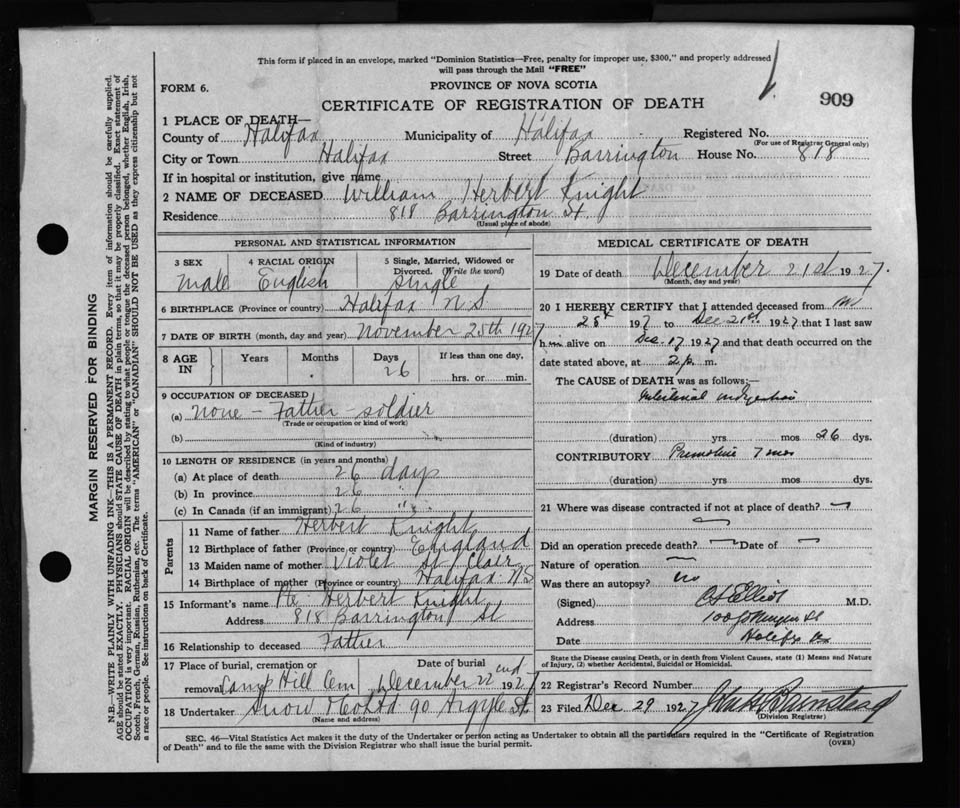 This form if placed in an envelope, marked "Dominion Statistics—Free, penalty for improper use, $300," and properly addressed
will pass through the Mail "FREE"
FORM 6.
PROVINCE OF NOVA SCOTIA
909
CERTIFICATE OF REGISTRATION OF DEATH
1 PLACE OF DEATH—
County of Halifax Municipality of Halifax Registered No.
(For use of Registrar General only)
City or Town Halifax Street Barrington House No. 818
If in hospital or institution, give name
2 NAME OF DECEASED William Herbert Knight
Residence 818 Barrington St.
(Usual place of abode)
PERSONAL AND STATISTICAL INFORMATION
3 SEX 4 RACIAL ORIGIN 5 Single, Married, Widowed or
Divorced. (Write the word)
Male English Single
6 BIRTHPLACE (Province or country) Halifax N S
7 DATE OF BIRTH (month, day and year) November 25th 1927
8 AGE IN Years Months Days If less than one day,
26 hrs. or min.
9 OCCUPATION OF DECEASED
(a) None - Father - soldier
(Trade or occupation or kind of work)
(b)
(Kind of industry)
10 LENGTH OF RESIDENCE (in years and months)
(a) At place of death 26 days
(b) In province 26 "
(c) In Canada (if an immigrant) 26 "
Parents
11 Name of father Herbert Knight
12 Birthplace of father (Province or country) England
13 Maiden name of mother Violet St Clair
14 Birthplace of mother (Province or country) Halifax N S
15 Informant's name Pte Herbert Knight
Address 818 Barrington St
16 Relationship to deceased Father
17 Place of burial, cremation or Date of burial
removal Camp Hill Cem December 22nd 1927
18 Undertaker Snow & Co Ltd 90 Argyle St
(Name and address)
MEDICAL CERTIFICATE OF DEATH
19 Date of death December 21st 1927.
(Month, day and year)
20 I HEREBY CERTIFY that I attended deceased from
28 197 to Dec 21st 1927 that I last saw
him alive on Dec. 17 1927 and that death occurred on the
date stated above, at 2 p. m.
The CAUSE OF DEATH was as follows:—
Intestinal indigestion
(duration) yrs mos 26 dys.
CONTRIBUTORY Premature 7 mos
(duration) yrs mos dys.
21 Where was disease contracted if not at place of death?
Did an operation precede death? Date of
Nature of operation
Was there an autopsy? no
(Signed) M.D.
Address
Date Halifax
State the Disease causing Death, or in death from Violent Causes, state (1) Means and Nature
of Injury, (2) whether Accidental, Suicidal or Homicidal.
22 Registrar's Record Number
23 Filed Dec 29 1927
(Division Registrar)
SEC. 46—Vital Statistics Act makes it the duty of the Undertaker or person acting as Undertaker to obtain all the particulars required in the "Certificate of Registration
of Death" and to file the same with the Division Registrar who shall issue the burial permit.
(OVER)
MARGIN RESERVED FOR BINDING
N.B.—WRITE PLAINLY WITH UNFADING INK—THIS IS A PERMANENT RECORD. Every item of information should be carefully supplied.
AGE should be stated EXACTLY. PHYSICIANS should STATE CAUSE OF DEATH in plain terms, so that it may be properly classified. Exact statement of
OCCUPATION is very important. RACIAL ORIGIN will be described by stating to what people or tongue the deceased person belonged, whether English, Irish,
Scotch, French, German, Russian, Ruthenian, etc. The terms "AMERICAN" or "CANADIAN" SHOULD NOT BE USED as they express citizenship but not
a race or people. See instructions on back of Certificate.